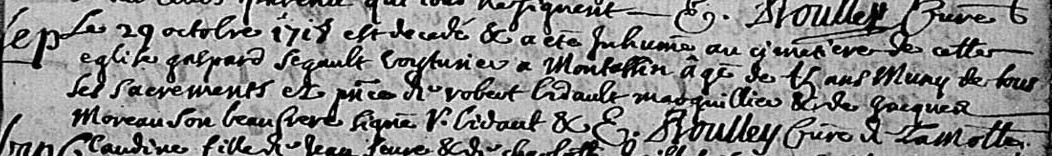 qui ... signent E. Droulley Curé
sep Le 29 octobre 1718 est decedé & a eté Inhumé au cimetiere de cette
eglise gaspard segault voyturier a Montassin âgé de 45 ans Muny de tous
ses sacrements et pnce de robert bidault marguillier & de jacques
Moreau son beau frere signé R. bidaut & E. Droulley Curé de Lamotte
bap Claudine fille de Jean & de